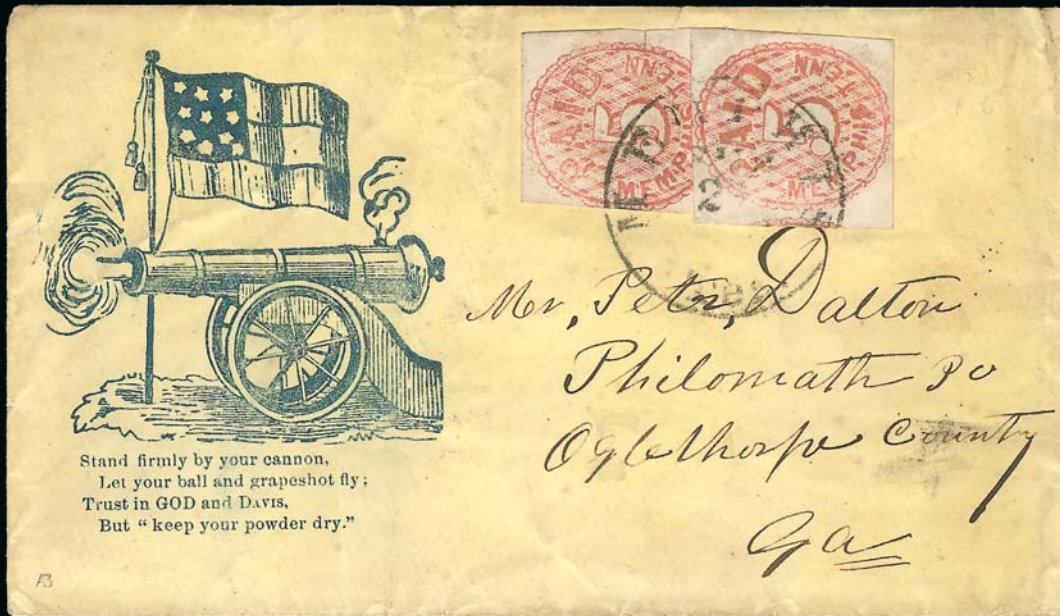 PAID 5 MEMPHIS TENN
PAID 5 MEMPHIS TENN
Mr, Peter, Dalton
Philomath PO
Oglethorpe County
Ga
Stand firmly by your cannon,
Let your ball and grapeshot fly;
Trust in GOD and DAVIS,
But “ keep your powder dry.”